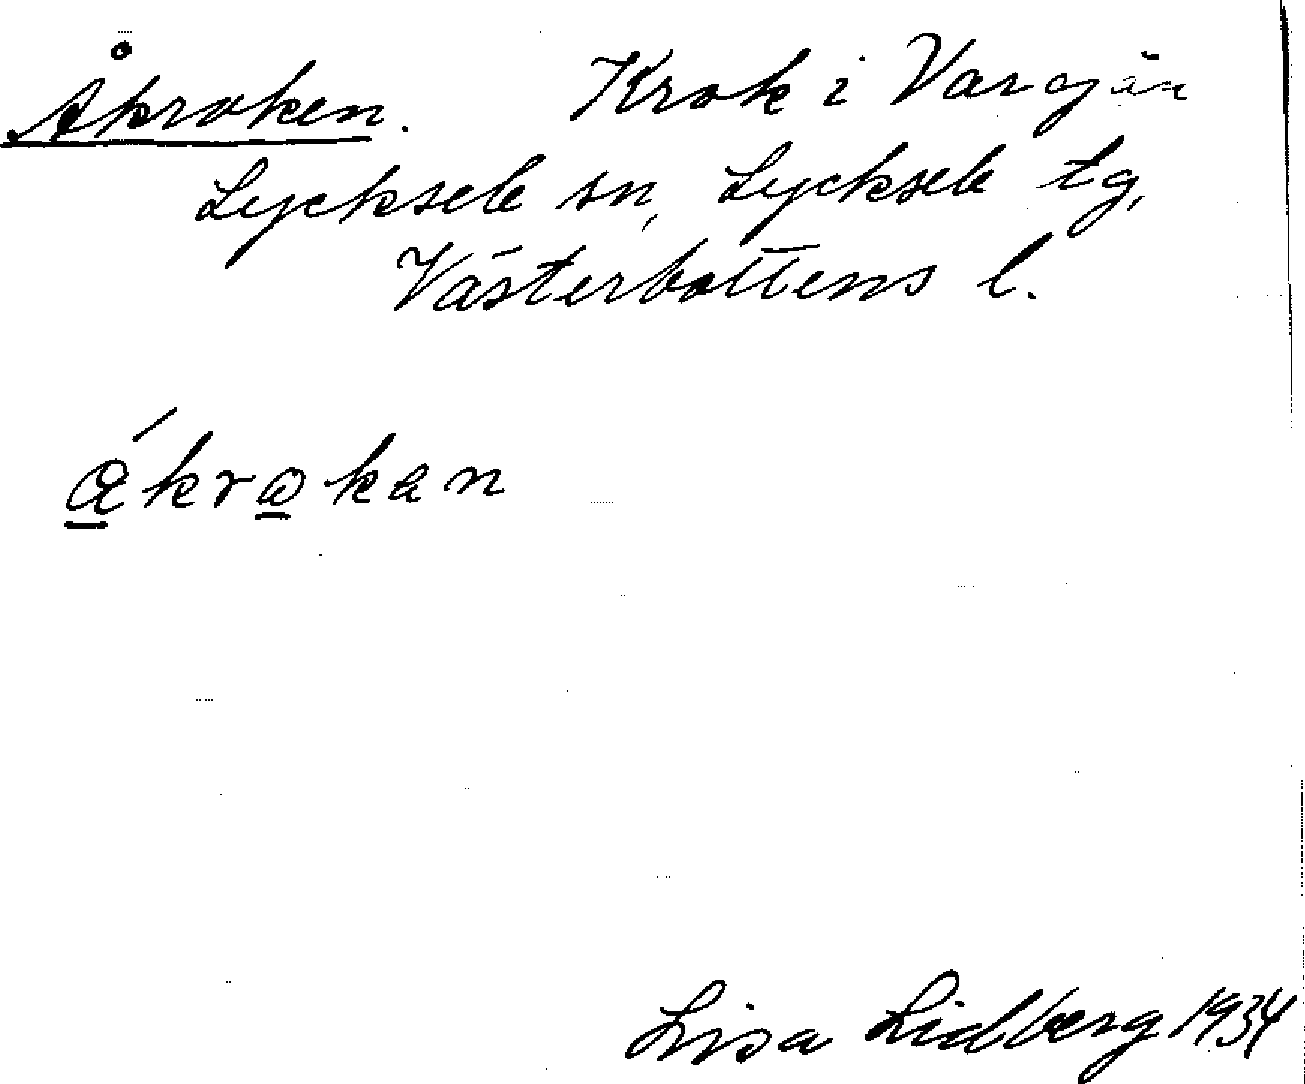 Åkroken. Krok i Vargån
Lycksele sn, Lycksele tg,
Västerbottens l.
åkrokan
Lisa Lidberg 1934